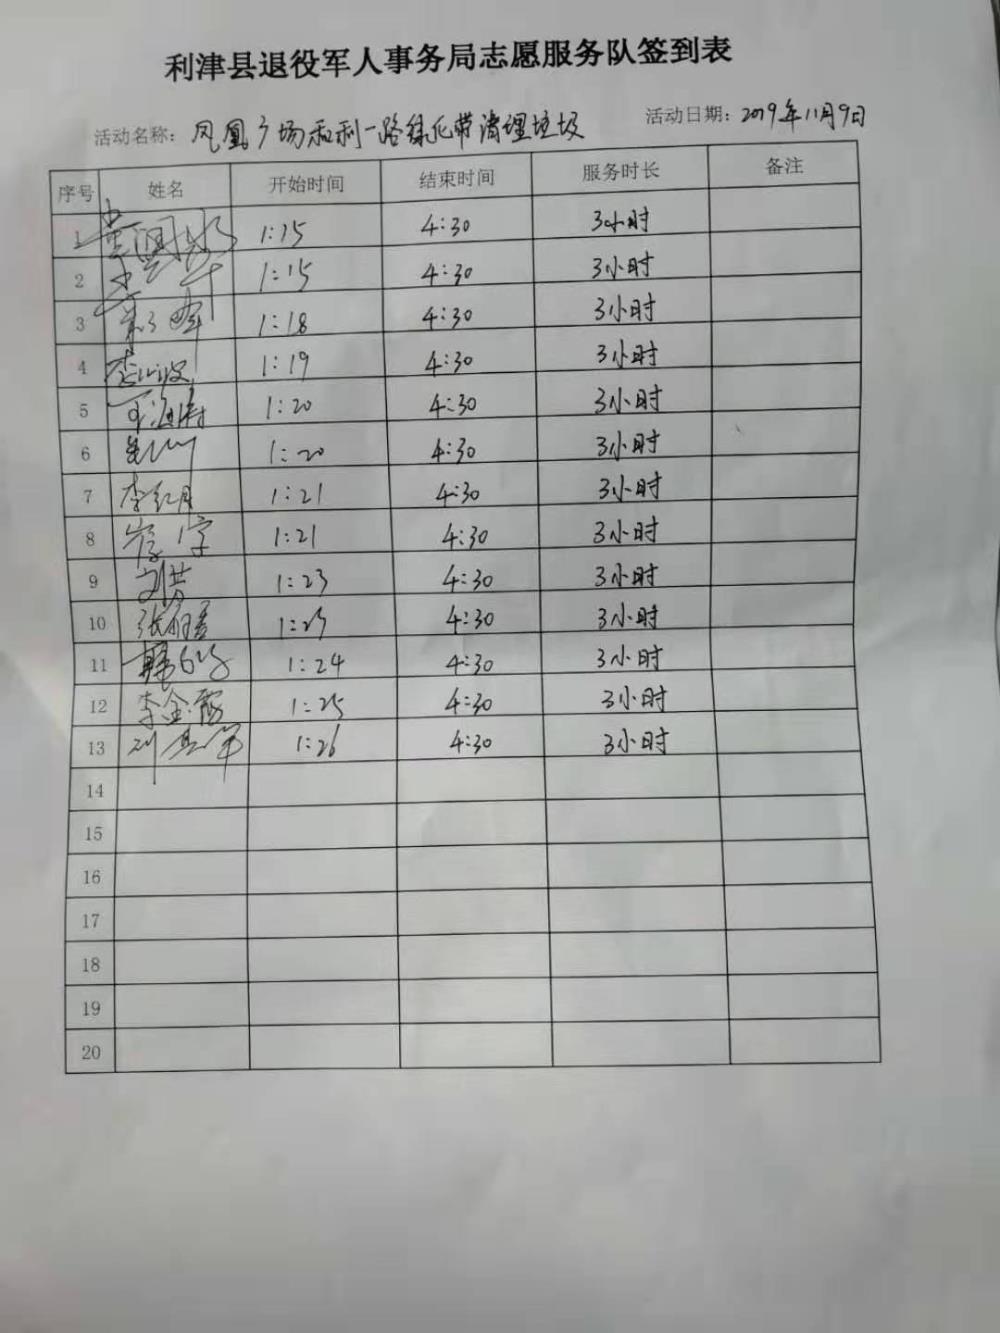 利津县退役军人事务局志愿服务队签到表
活动名称: 凤凰广场和利一路绿化带清理垃圾 活动日期: 2019年11月9日
序号 姓名 开始时间 结束时间 服务时长 备注
1 1:15 4:30 3小时
2 1:15 4:30 3小时
3 1:18 4:30 3小时
4 1:19 4:30 3小时
5 1:20 4:30 3小时
6 1:20 4:30 3小时
7 李红月 1:21 4:30 3小时
8 1:21 4:30 3小时
9 1:23 4:30 3小时
10 1:25 4:30 3小时
11 1:24 4:30 3小时
12 李金霞 1:25 4:30 3小时
13 1:26 4:30 3小时
14
15
16
17
18
19
20